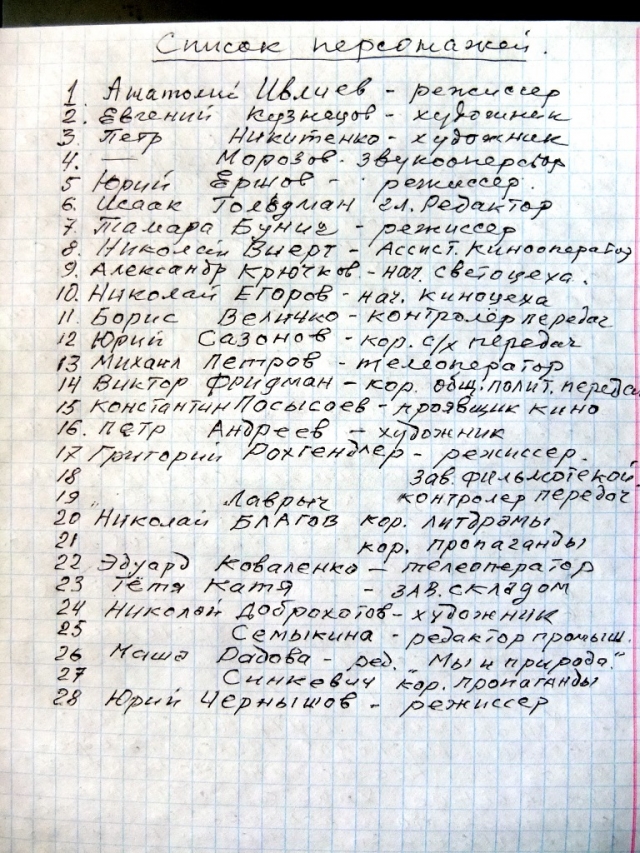 Список персонажей.
1. Анатолий Ивлиев - режиссер
2. Евгений Кузнецов - художник
3. Петр Никитенко - художник
4. — Морозов - звукооператор
5 Юрий Ершов - режиссер.
6. Исаак Гольдман гл. Редактор
7. Тамара Бунич - режиссер
8. Николай Виерт - Ассист. Кинооператор
9. Александр Крючков - нач. светоцеха.
10. Николай ЕГоров - нач. киноцеха
11 Борис Величко - контролёр передач
12 Юрий Сазонов - кор. с/х передач
13 Михаил Петров - телеоператор
14 Виктор Фридман - кор. общ. полит. передач
15 Константин Посысоев - проявщик кино
16. Петр Андреев - художник
17 Григорий Рохгендлер - режиссер.
18 зав. фильмотекой.
19 " Лаврыч контролер передач
20 Николай БЛАГОВ кор. литдрамы
21 кор. пропаганды
22 Эдуард Коваленко - телеоператор
23 Тётя Катя - зав. складом
24 Николай Доброхотов - художник
25 Семыкина - редактор промыш.
26 Маша Радова - ред. "Мы и природа."
27 Синкевич кор. пропаганды
28 Юрий Чернышов - режиссер